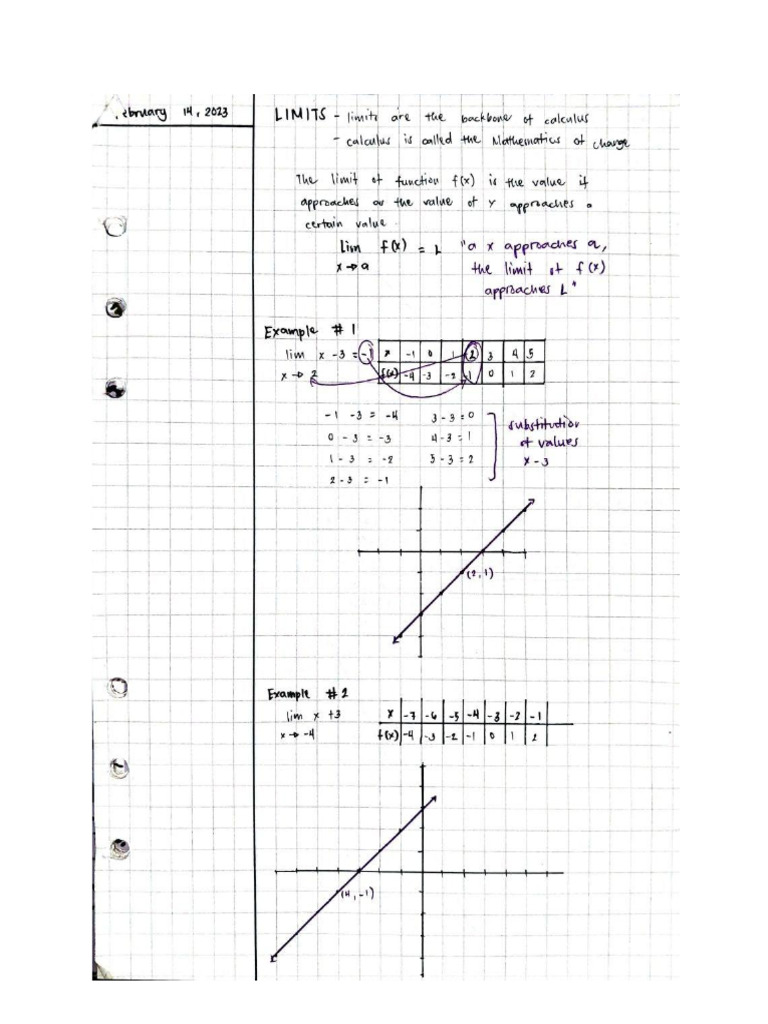 February 14, 2023
LIMITS - limits are the backbone of calculus
- calculus is called the Mathematics of change
The limit of function f(x) is the value it
approaches as the value of x approaches a
certain value.
lim f(x) = L "a x approaches a,
x → a the limit of f(x)
approaches L"
Example # 1
lim x - 3 = -1
x → 2
x -1 0 1 2 3 4 5
f(x) -4 -3 -2 -1 0 1 2
-1 - 3 = -4 3 - 3 = 0
0 - 3 = -3 4 - 3 = 1
1 - 3 = -2 5 - 3 = 2
2 - 3 = -1
substitution
of values
x - 3
(2, 1)
Example # 2
lim x + 3
x → -4
x -7 -6 -5 -4 -3 -2 -1
f(x) -4 -3 -2 -1 0 1 2
(4, -1)